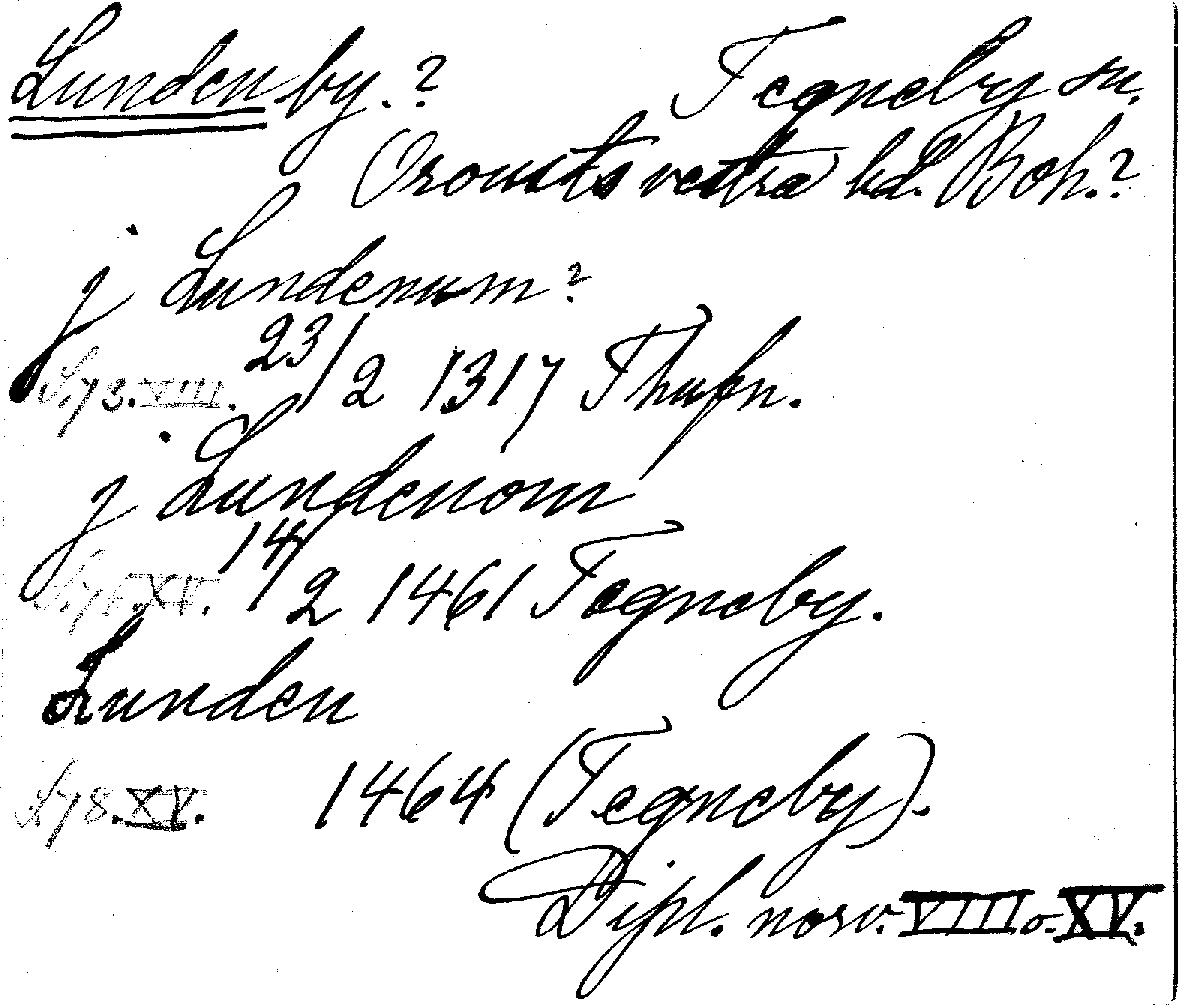 Lunden by.? Tegneby sn.
Orousts vestra hd. Boh.?
j Lundenum?
S.73.VIII. 23/2 1317 Thufn.
j Lundenom
14/2 1461 Tegneby.
Lunden
S.78.XV. 1464 (Tegneby).
Dipl. norv. VIII o. XV.